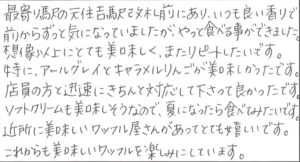 最寄り駅の元住吉駅で夕ホし前にあり、いつも良い香りで
前からずっと気になっていましたが、やっと食べる事ができました。
想像以上にとても美味しく、またリピートしたいです。
特に、アールグレイとキャラメルりんごが美味しかったです。
店員の方と迅速にきちんと対応して下さって良かったです。
ソフトクリームも美味しそうなので、夏になったら食べてみたいです。
近所に美味しいワッフル屋さんがあってとても嬉しいです。
これからも美味しいワッフルを楽しみにしています。